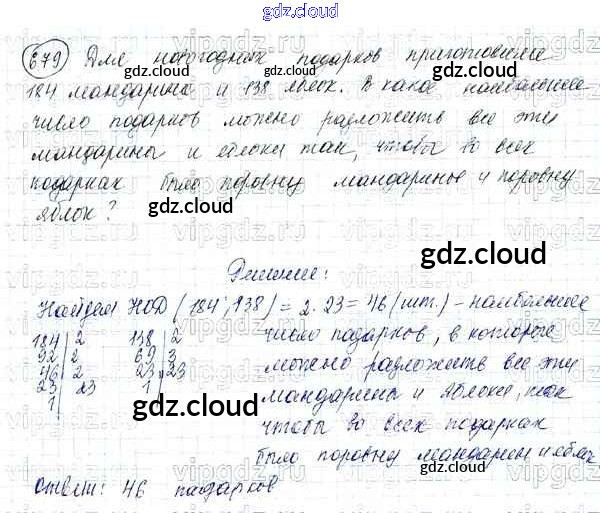 gdz.cloud
679) Для новогодних подарков приготовили
184 мандарина и 138 яблок. В какое наибольшее
число подарков можно разложить все эти
мандарины и яблоки так, чтобы во всех
подарках было поровну мандаринов и поровну
яблок?
gdz.cloud
gdz.cloud
Решение:
Найдем НОД (184; 138) = 2 · 23 = 46 (шт.) – наибольшее
184 | 2 138 | 2 число подарков, в которые
92 | 2 69 | 3 можно разложить все эти
46 | 2 23 | 23 мандарины и яблоки, так
23 | 23 1 чтобы во всех подарках
1 было поровну мандарин и яблок
gdz.cloud
gdz.cloud
gdz.cloud
Ответ: 46 подарков